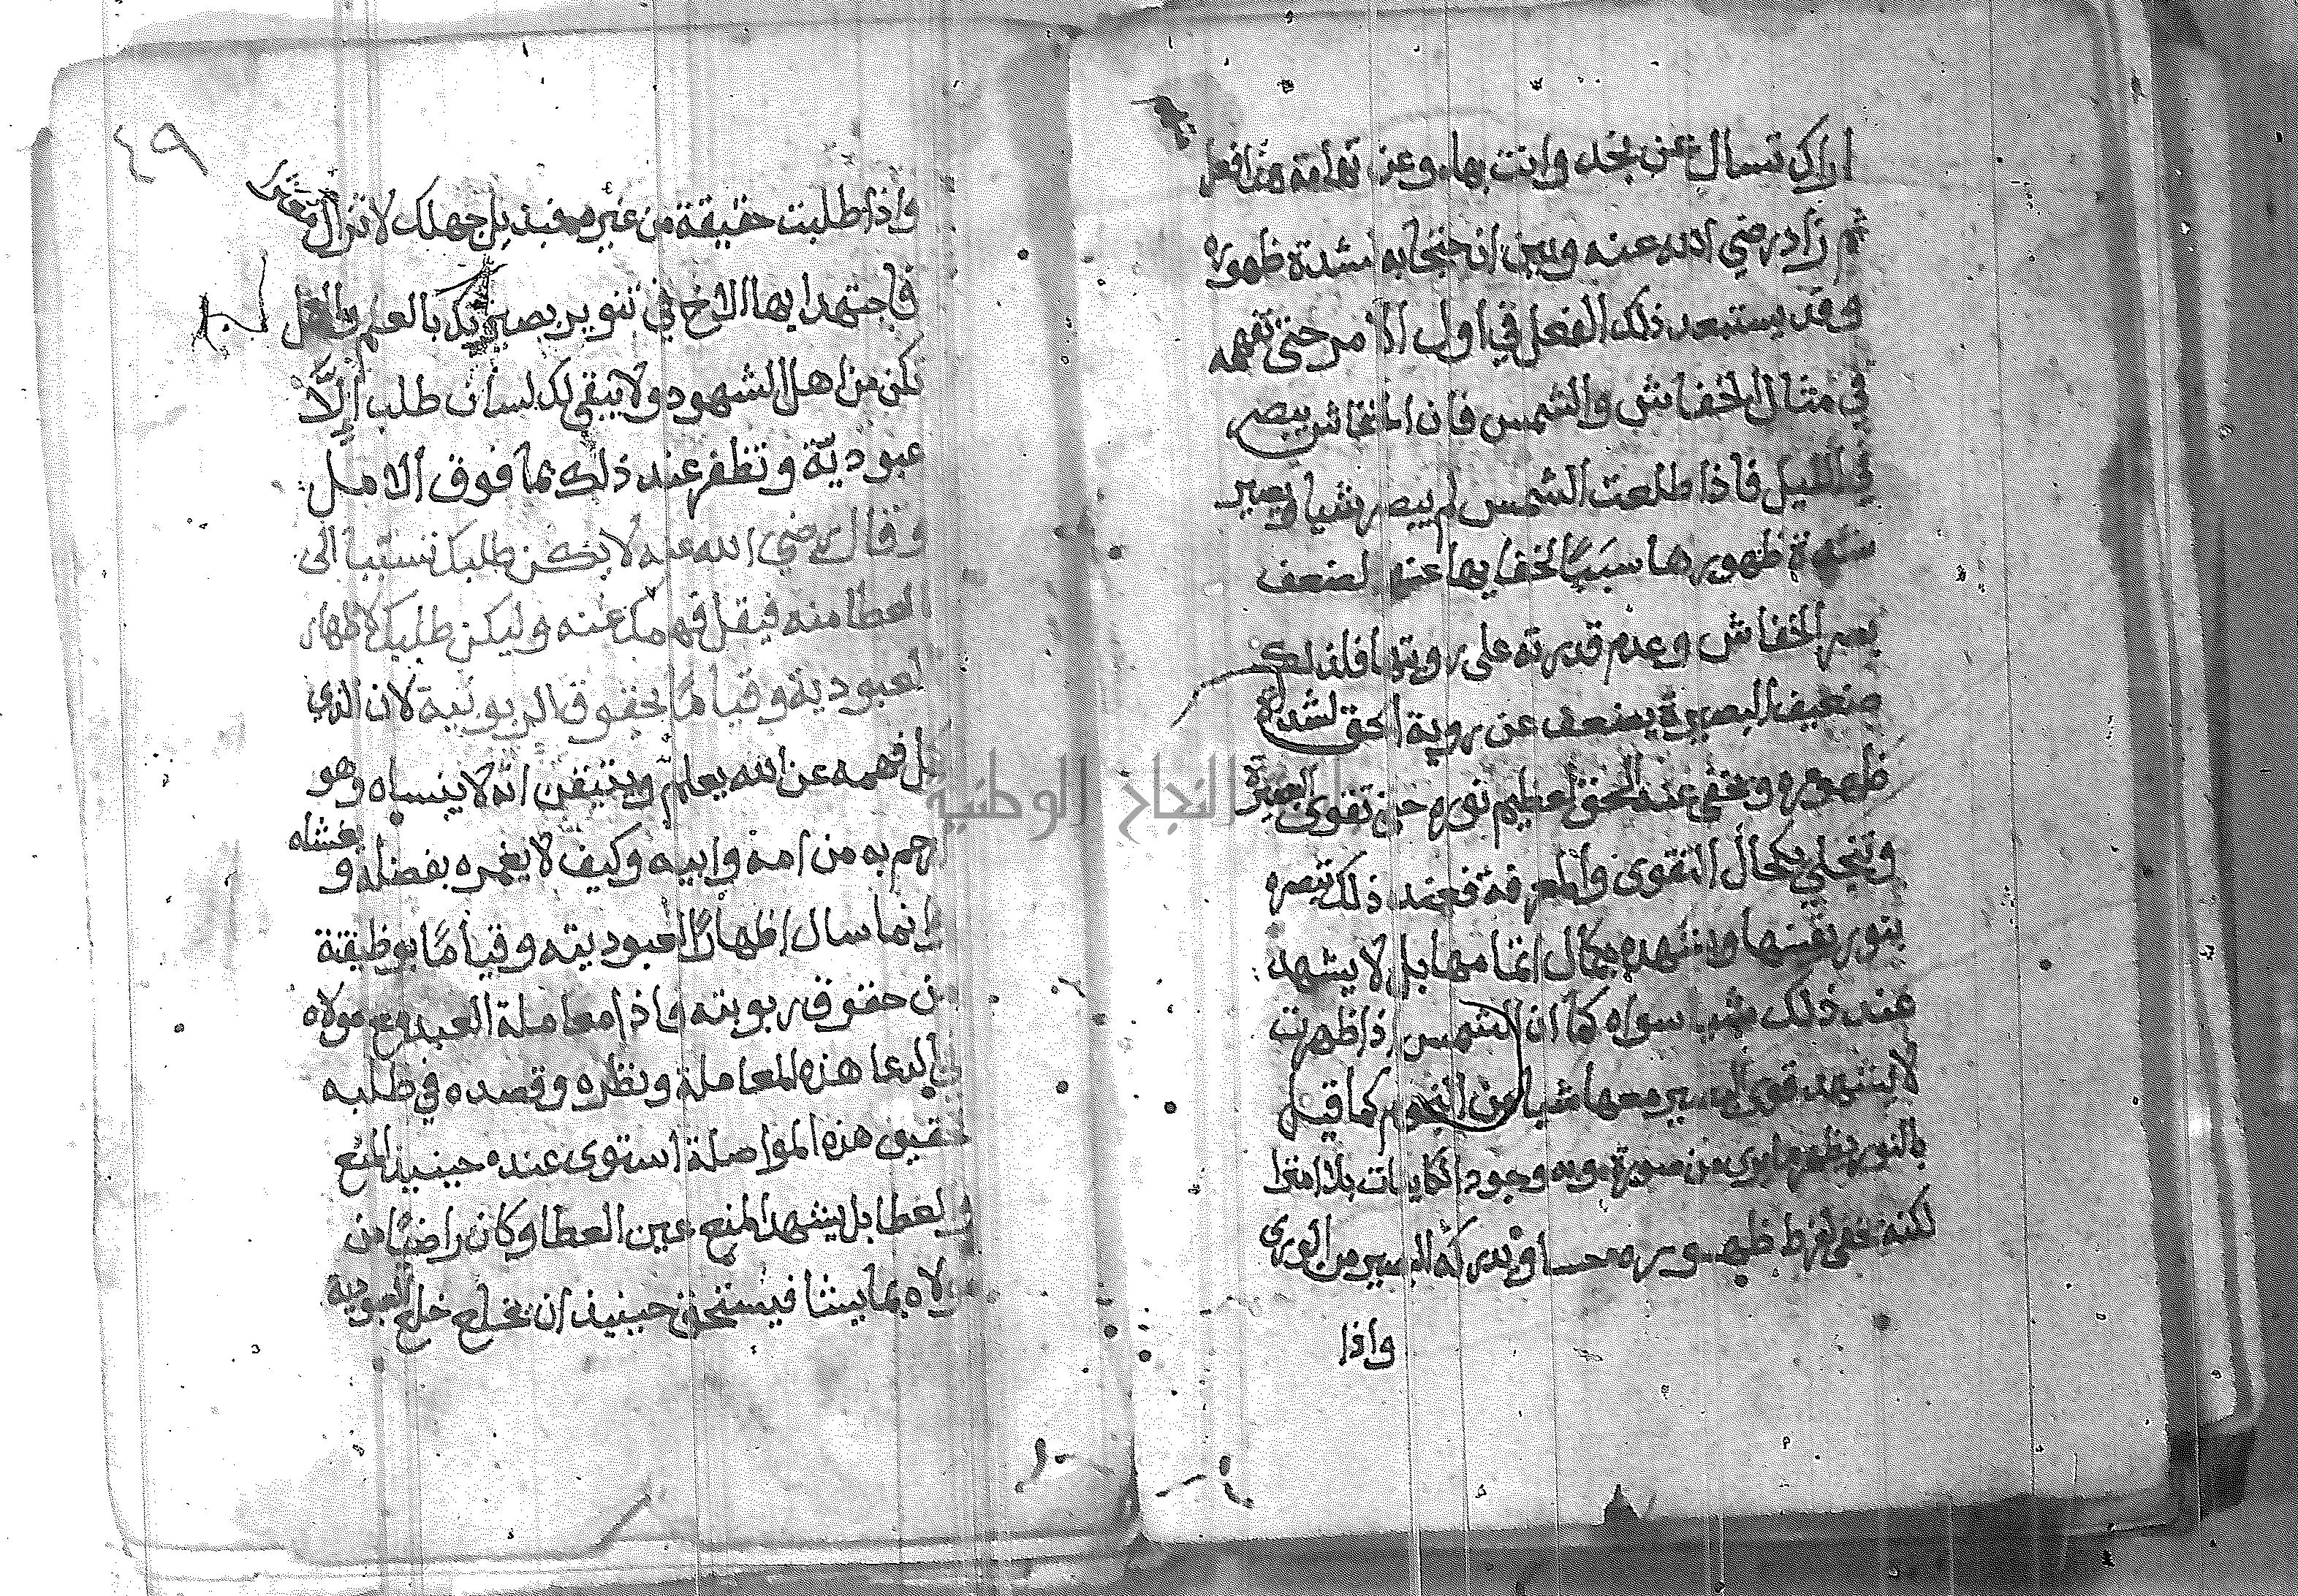 اراك تسال عن نجد وانت بها وعن تهامة هذا فعل
ثم زاد رضي الله عنه وبين ان احتجابه لشدة ظهوره
وقد يستبعد ذلك العقل في اول الامر حتى تفهمه
في مثال الخفاش والشمس فان الخفاش يبصر
في الليل فاذا طلعت الشمس لم يبصر شيا ويصير
شدة ظهورها سببًا لخفايها عنه لضعف
بصر الخفاش وعدم قدرته على رويتها فلذلك
ضعيف البصيرة يضعف عن روية الحق لشدة
ظهوره ويخفى عنه الحق لعظيم نوره حتى تقوى البصيرة
وتنجلي بكحال التقوى والمعرفة فعند ذلك تبصره
بنور نفسها وتشهده بكمال اتمامها بل لا يشهد
عند ذلك شيا سواه كما ان الشمس اذا ظهرت
لا يشهد قوي البصير معها شيا من النجوم كما قيل
بالنور يظهر ما يرى من صورة وبه وجود الكاينات بلا امترا
لكنه يخفى لفرط ظهوره حسا ويدركه البصير من الورى
واذا
٤٩
واذا طلبت حقيقة من غيره فبذيل جهلك لا تزال معثر
فاجتهد ايها الاخ في تنوير بصيرتك بالعلم والعمل
تكن من اهل الشهود ولا يبقى لك لسان طلب الَّا
عبوديّة وتظفر عند ذلك بما فوق الامل
وقال رضي الله عنه لا يكن طلبك تسببا الى
العطا منه فيقل فهمك عنه وليكن طلبك لاظهار
العبودية وقيامًا بحقوق الربوبية لان الذي
قل فهمه عن الله يعلم ويتيقن انه لا ينساه وهو
ارحم به من امه وابيه وكيف لا يغمره بفضله ويغشاه
وانما سال اظهارًا لعبوديته وقيامًا بوظيفة
من حقوق ربوبته فاذا معاملة العبد مع مولاه
في الدعا هذه المعاملة ونظره وقصده في طلبه
تحقيق هذه المواصلة استوى عنده حينيذ المنع
والعطا بل يشهد المنع عين العطا وكان راضيًا من
مولاه بما يشا فيستحق حينيذ ان يخلع خلع العبودية
جامعة النجاح الوطنية